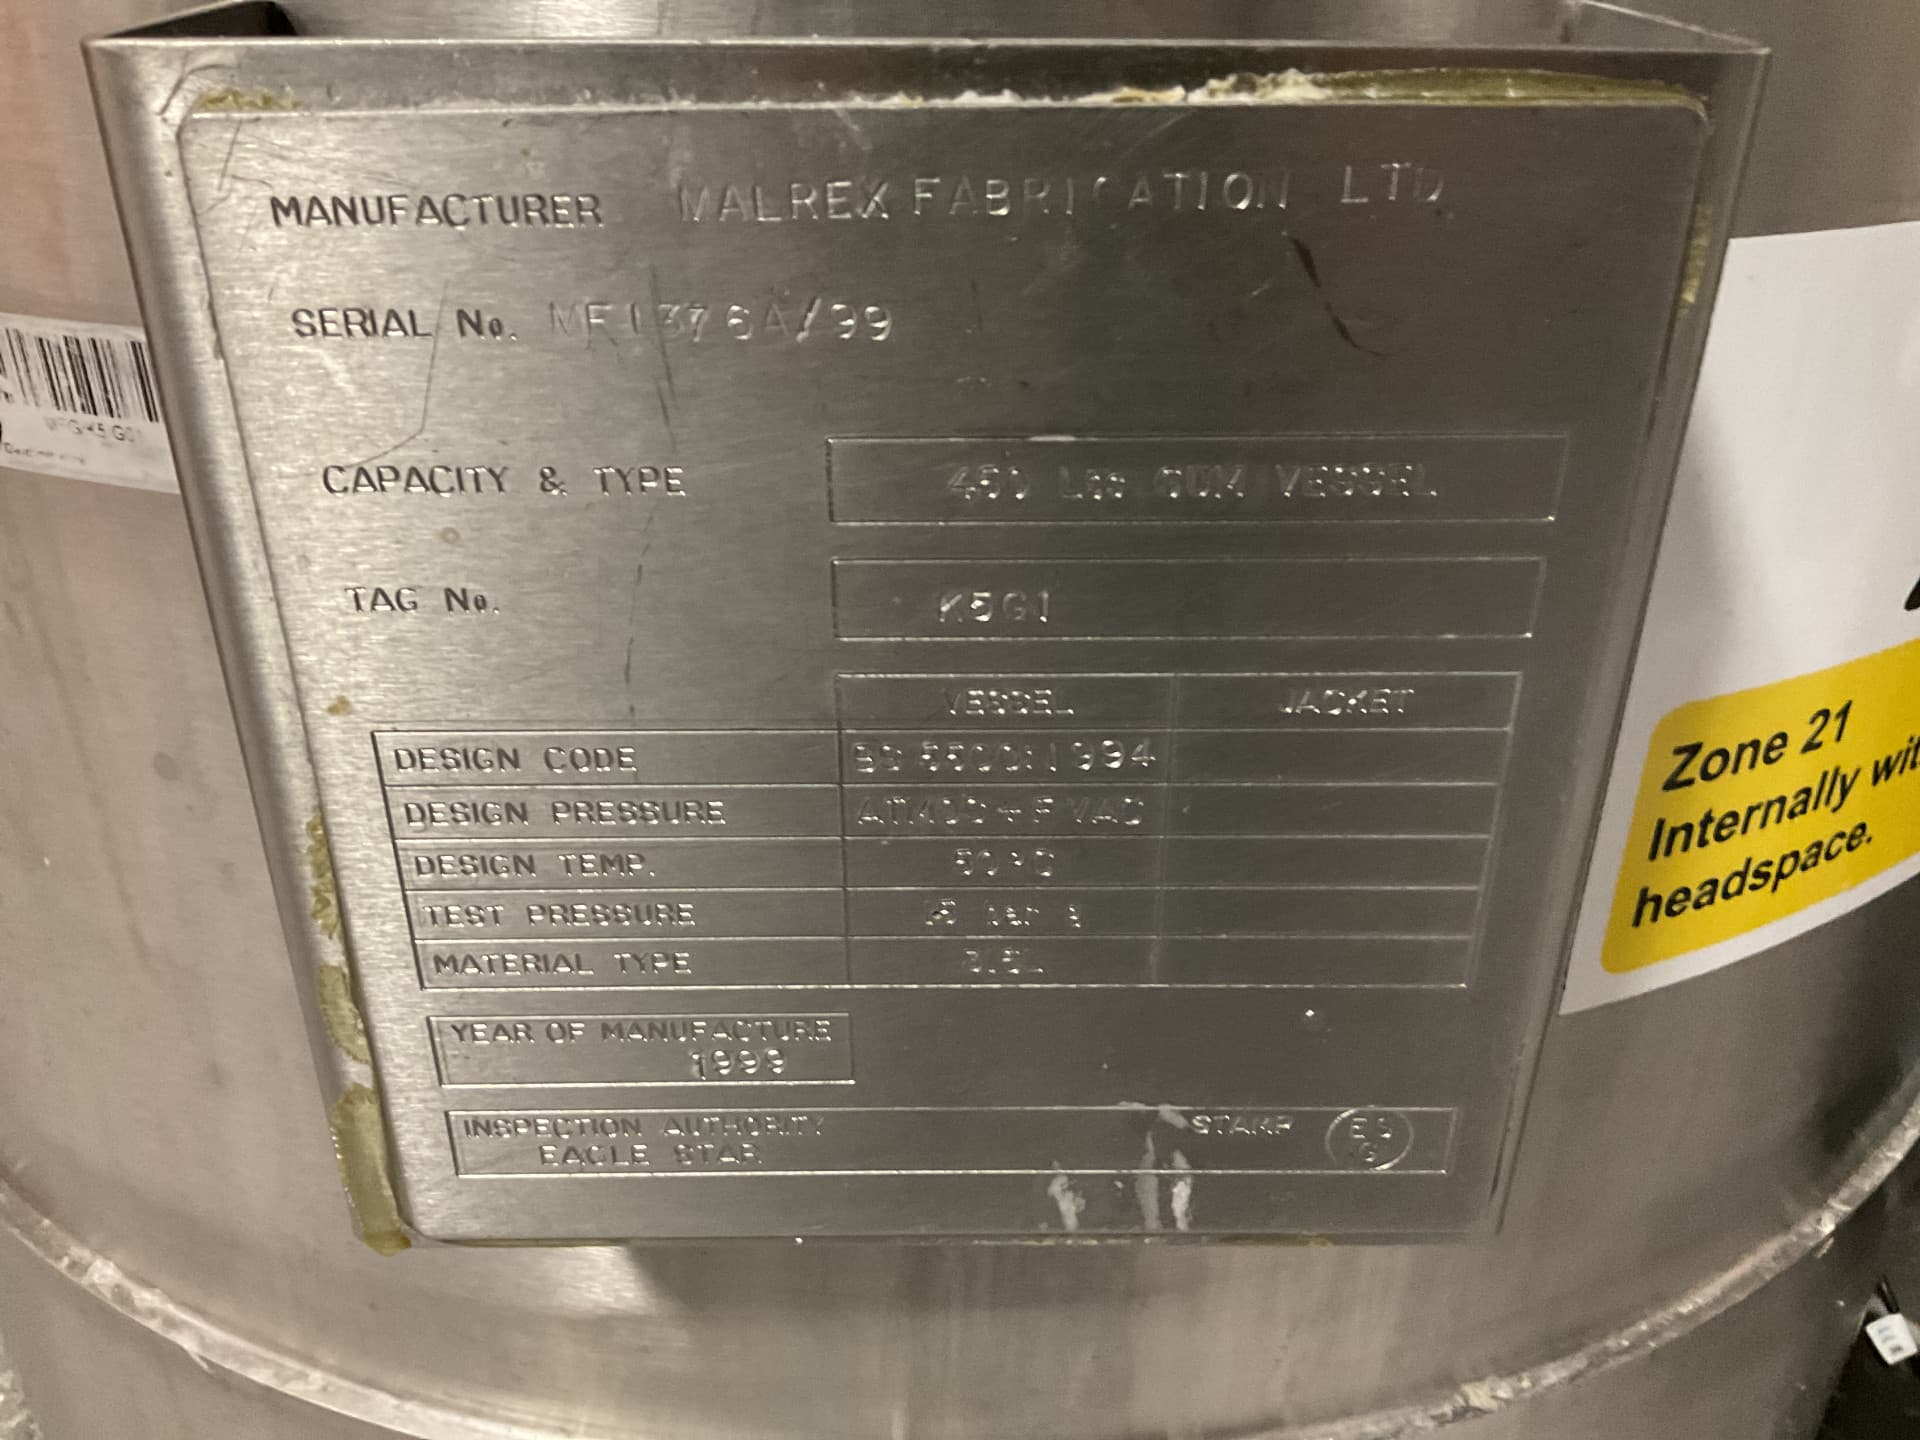 MANUFACTURER MALREX FABRICATION LTD
SERIAL No. MF1376A/99
CAPACITY & TYPE 450 Lts GUM VESSEL
TAG No. K5G1
VESSEL JACKET
DESIGN CODE BS 5500:1994
DESIGN PRESSURE ATMOS + F VAC
DESIGN TEMP. 50°C
TEST PRESSURE bar g
MATERIAL TYPE 316L
YEAR OF MANUFACTURE
1999
INSPECTION AUTHORITY STAMP
EAGLE STAR
Zone 21
Internally
headspace.